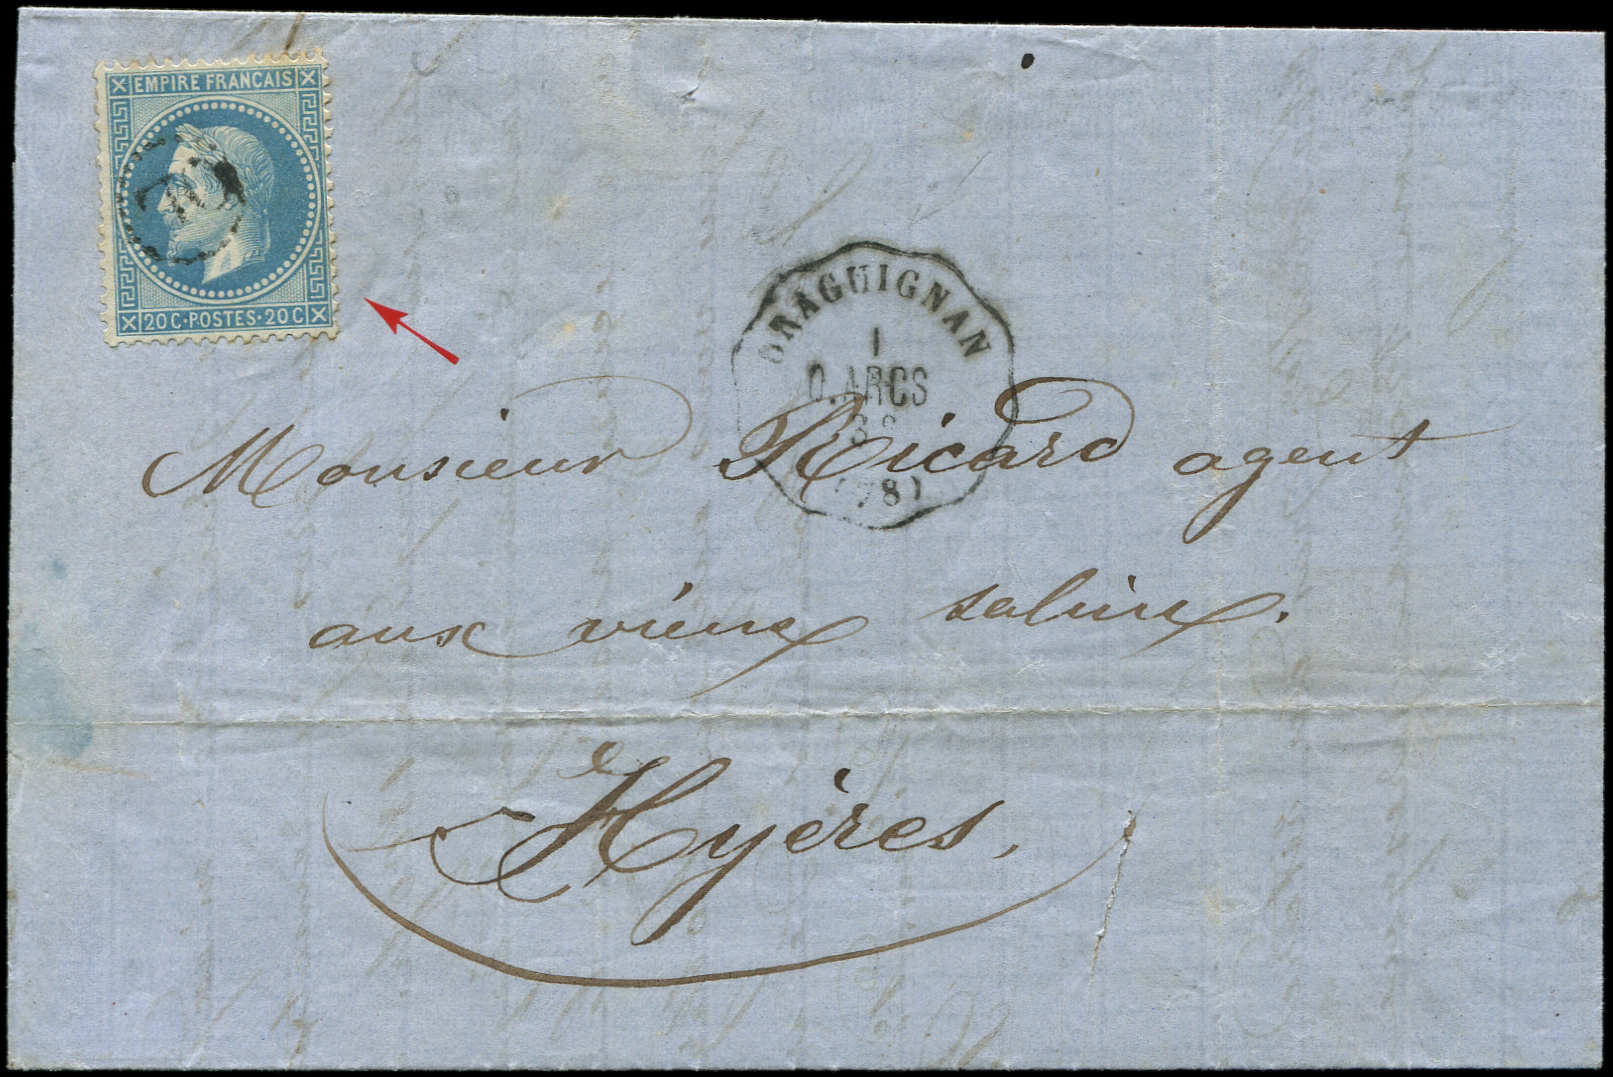 EMPIRE FRANCAIS
20 C·POSTES·20 C
DRAGUIGNAN
1
D.ARCS
(78)
Monsieur Ricard agent
aux vieux salins.
Hyères,